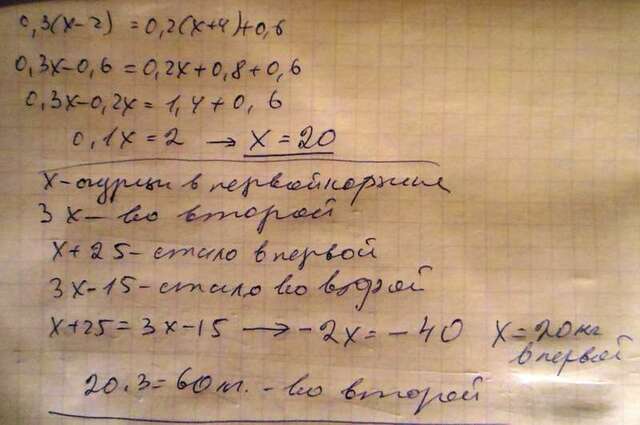 0,3(x-2) = 0,2(x+4)+0,6
0,3x-0,6 = 0,2x+0,8+0,6
0,3x-0,2x = 1,4+0,6
0,1x = 2 → x = 20
x-огурцы в первой корзине
3x- во второй
x+25- стало в первой
3x-15- стало во второй
x+25 = 3x-15 → -2x = -40 x = 20 кг
в первой
20.3 = 60 кг. - во второй